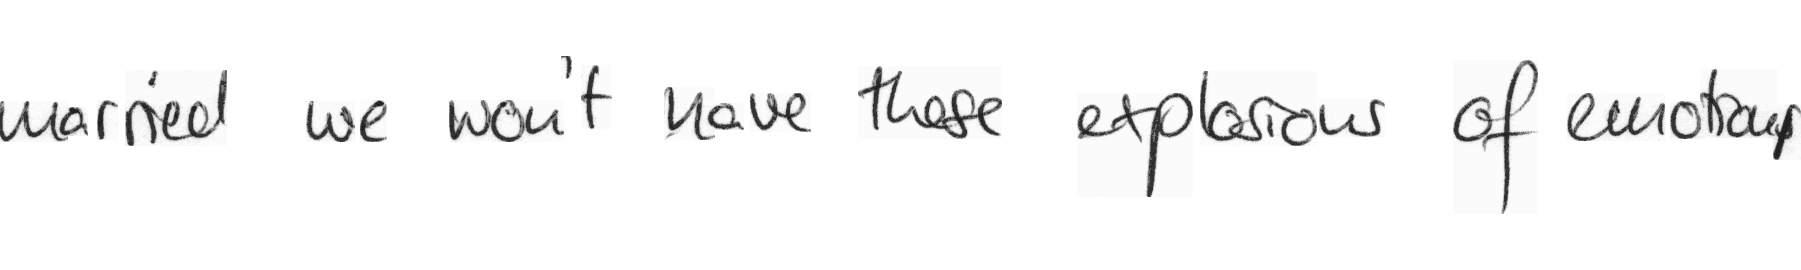 married we won't have these explosions of emotions